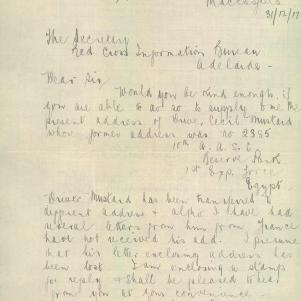 Macclesfield
31/12/17
The Secretary
Red Cross Information Bureau
Adelaide
Dear Sir,
Would you be kind enough, if
you are able to do so to supply to me the
present address of Driver Cecil Mustard
whose former address was no 2385
10th A. A. S. C.
Reserve Park
1st Exp. Force
Egypt
Driver Mustard has been transferred to
different address & altho I have had
several letters from him from France
have not received his add. I presume
that his letter enclosing address has
been lost. I am enclosing a stamp
for reply & shall be pleased to hear
from you at your convenience